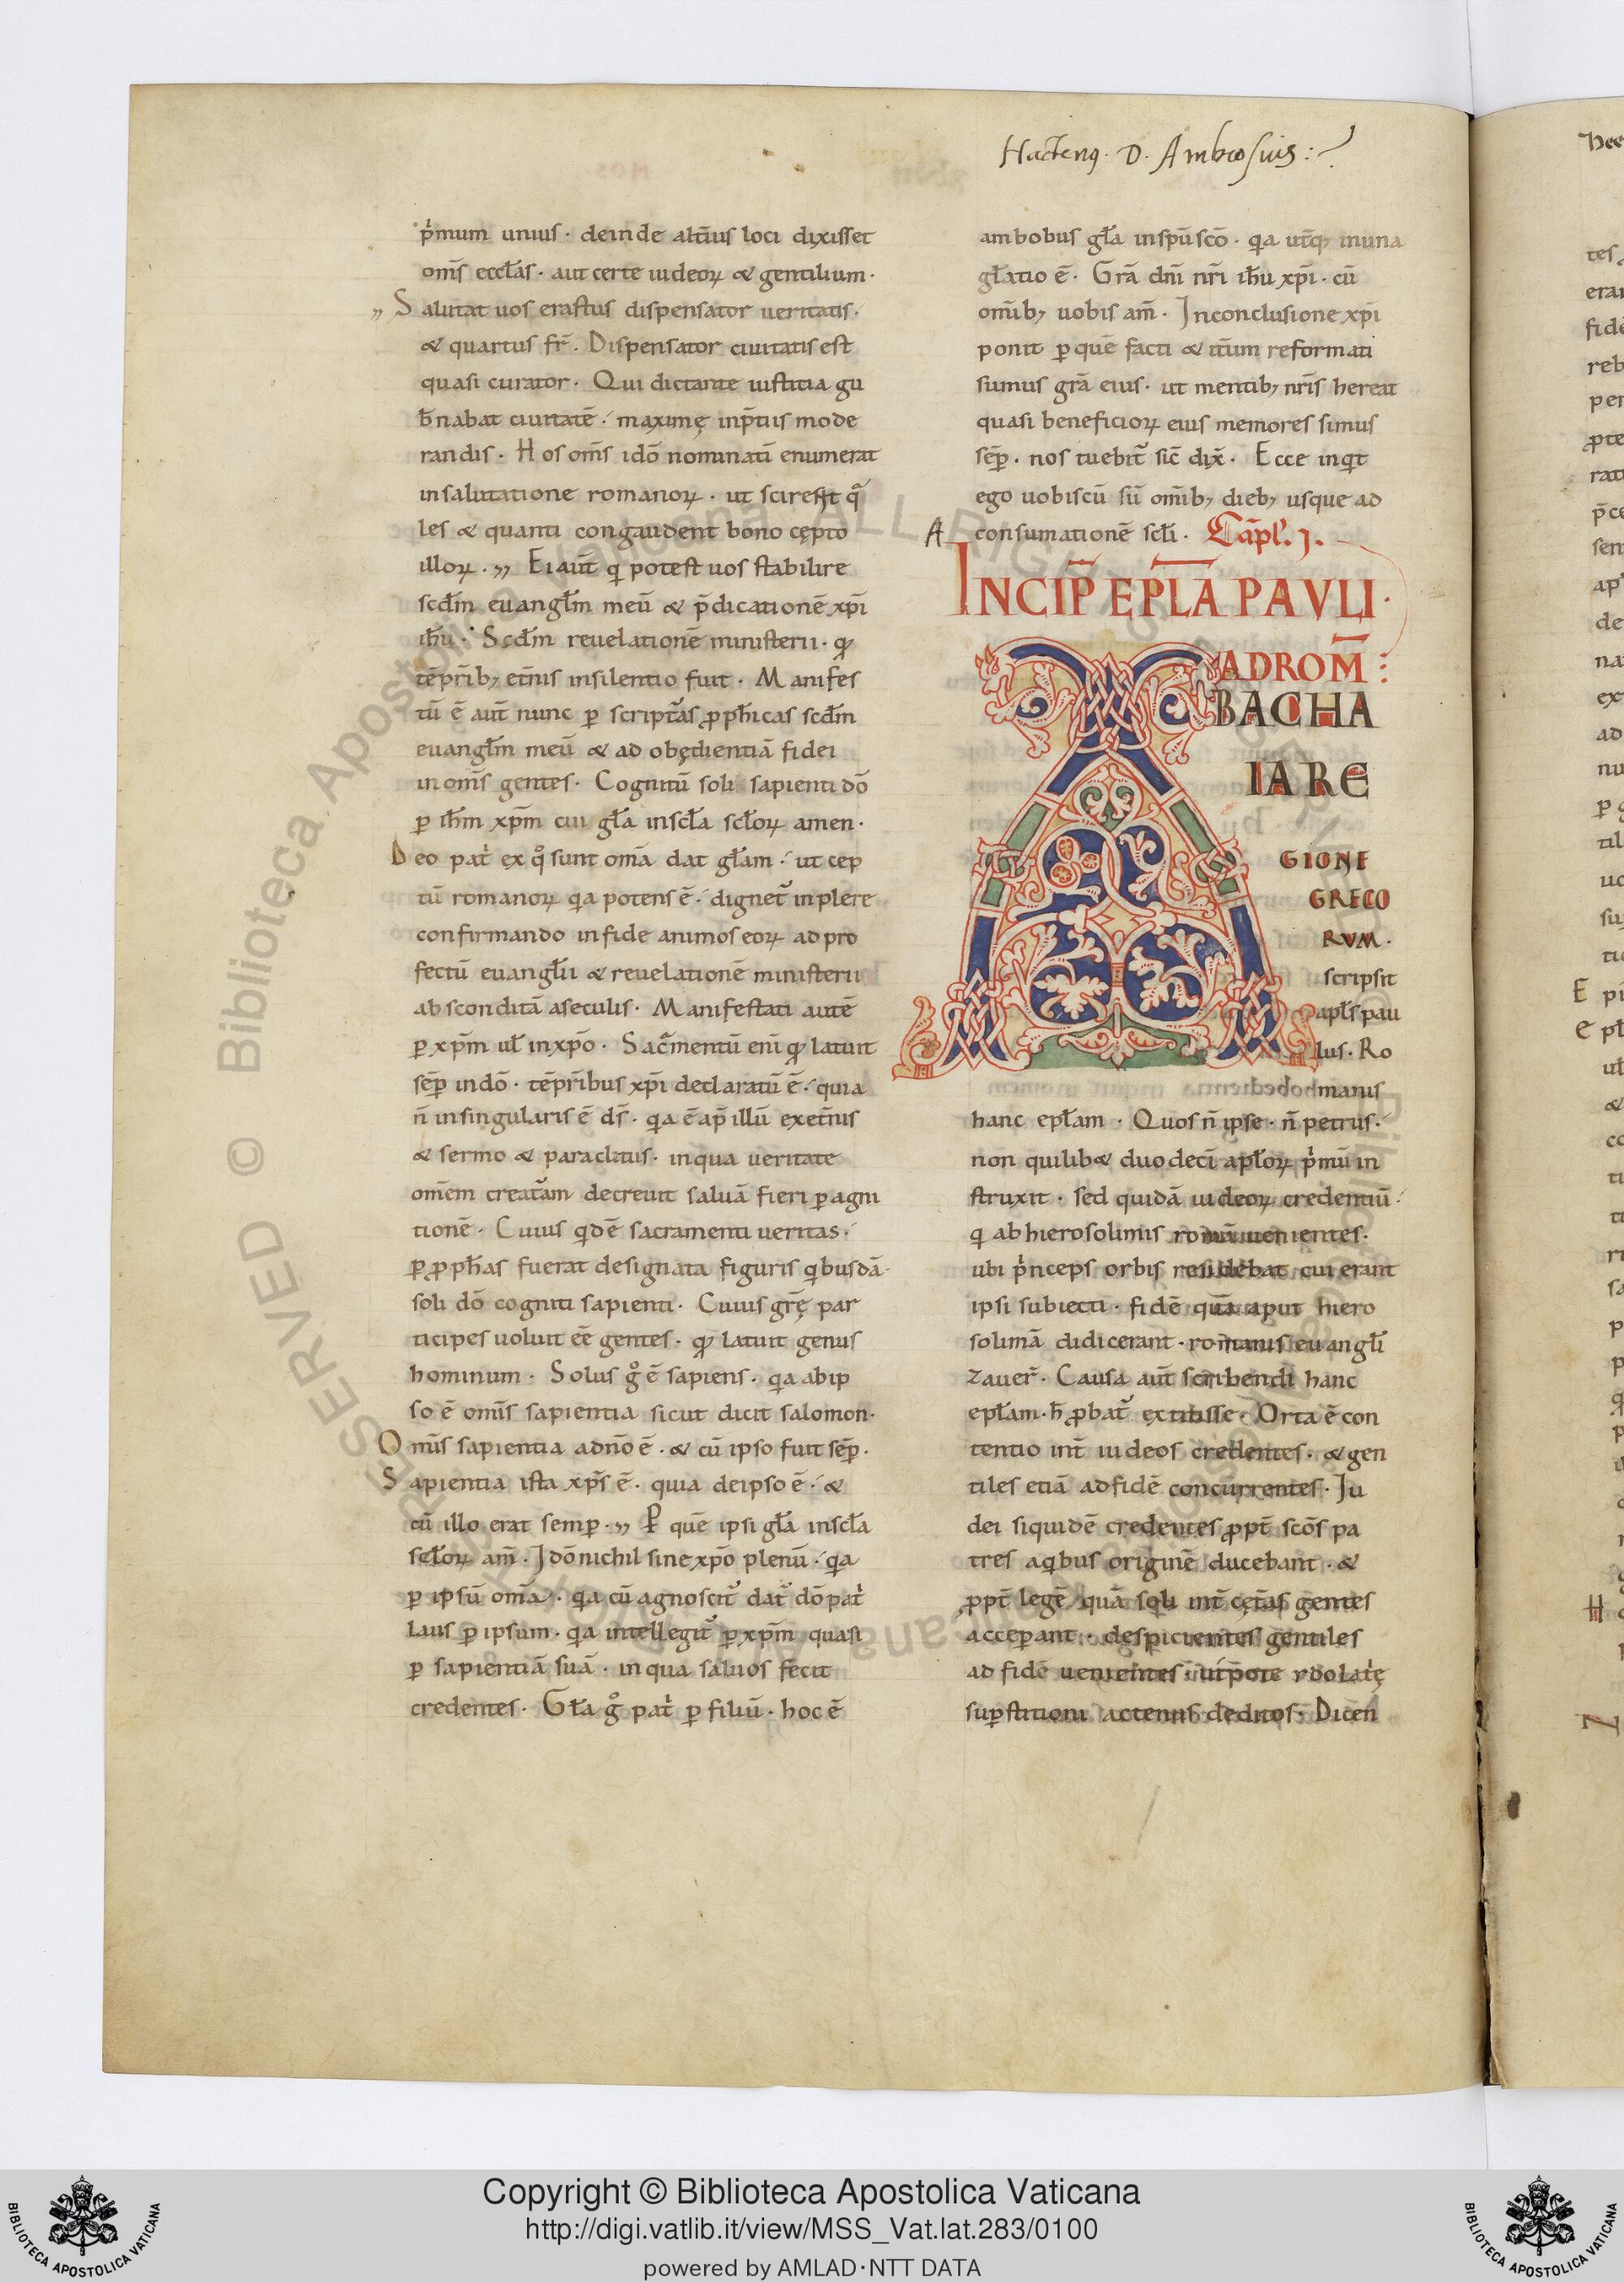 Hacteng. D. Ambrosius:
p̍mum unius · deinde alt̄ius loci dixisset
om̄s eccl̄as · aut certe iudeoꝝ & gentilium ·
„ Salutat uos erastus dispensator ueritatis ·
& quartus fr̄ · Dispensator ciuitatis est
quasi curator · Qui dictante iustitia gu
b̄nabat ciuitatē · maximę inp̄tiis mode
randis · Hos om̄s idō nominatī enumerat
in salutatione romanoꝝ · ut scirent q̄
les & quanti congaudent bono cępto
illoꝝ · „ Ei aut̄ q potest uos stabilire
scd̄m euangl̄m meū & p̄dicationē xp̄i
ih̄u · Scd̄m reuelationē ministerii · qđ
tēp̄rib; et̄nis in silentio fuit · Manifes
tū ē aut̄ nunc ꝑ script̄as ꝓph̄icas scd̄m
euangl̄m meū & ad obędientiā fidei
in om̄s gentes · Cognitū soli sapienti dō
ꝑ ih̄m xp̄m cui gl̄a in scl̄a scl̄oꝝ amen ·
Deo pat̍ ex q̊ sunt om̄a dat gl̄am · ut cep
tū romanoꝝ qa potens ē · dignet̄ inplere
confirmando in fide animos eoꝝ ad pro
fectū euangl̄ii & reuelationē ministerii
absconditā aseculis · Manifestati autē
ꝑ xp̄m ul̄ in xp̄o · Sac̄mentū enī qđ latuit
sēꝑ in dō · tēp̄ribus xp̄i declaratū ē · quia
n̄ in singularis ē ds̄ · qa ē ap̄ illū ex et̄nis
& sermo & paraclitus · in qua ueritate
om̄em creat̄am decreuit saluā fieri ꝑ agni
tionē · Cuius qdē sacramenti ueritas ·
ꝑ ꝓph̄as fuerat designata figuris qbusdā ·
soli dō cogniti sapienti · Cuius gr̄ę par
ticipes uoluit eē gentes · qđ latuit genus
hominum · Solus g̊ ē sapiens · qa ab ip
so ē om̄is sapientia sicut dicit salomon ·
Om̄is sapientia a dn̄o ē · & cū ipso fuit sēꝑ ·
Sapientia ista xp̄s ē · quia de ipso ē · &
cū illo erat semꝑ · „ Ꝑ quē ipsi gl̄a in scl̄a
scl̄oꝝ am̄ · Idō nichil sine xp̄o plenū · qa
ꝑ ipsū om̄a · qa cū agnoscit̄ dat̄ dō pat̍
Laus ꝑ ipsum · qa intellegit̄ ꝑ xp̄m quasi
ꝑ sapientiā suā · in qua saluos fecit
credentes · Gl̄a g̊ pat̍ ꝑ filiū · hoc ē
ambobus gl̄a in sp̄u scō · qa ut̄q; in una
gl̄atio ē · Gr̄a dn̄i nr̄i ih̄u xp̄i · cū
om̄ib; uobis am̄ · In conclusione xp̄i
ponit ꝑ quē facti & it̄um reformati
sumus gr̄a eius · ut mentib; nr̄is hereat
quasi beneficioꝝ eius memores simus
sēꝑ · nos tuebit̄ sic̄ dix̄ · Ecce inqt
ego uobiscū sū om̄ib; dieb; usque ad
A consumationē scl̄i · Cāpl̄. 1.
INCIP̄ EPL̄A PAVLI ·
AD ROM̄ :
A
BACHA
IA RE
GIONE
GRECO
RVM ·
scripsit
apl̄s pau
lus · Ro
manis
hanc epl̄am · Quos n̄ ipse · n̄ petrus ·
non quilib& duodecī apl̄oꝝ p̍mū in
struxit · sed quidā iudeoꝝ credentiū ·
q ab hierosolimis romā uenientes ·
ubi p̍nceps orbis residebat cui erant
ipsi subiecti · fidē quā aput hiero
solimā didicerant · romanis euangl̄i
zauer̄ · Causa aut̄ scribendi hanc
epl̄am · h̄ ꝓbat̄ extitisse · Orta ē con
tentio int̄ iudeos credentes · & gen
tiles etiā ad fidē concurrentes · Iu
dei siquidē credentes ꝓpt̄ scōs pa
tres a qbus originē ducebant · &
ꝓpt̄ legē quā soli int̄ cęt̄as gentes
acceꝑant · despicientes gentiles
ad fidē uenientes · utpote ydolat̍ę
suꝑstitioni actenus deditos · Dicen
Copyright © Biblioteca Apostolica Vaticana
http://digi.vatlib.it/view/MSS_Vat.lat.283/0100
powered by AMLAD·NTT DATA